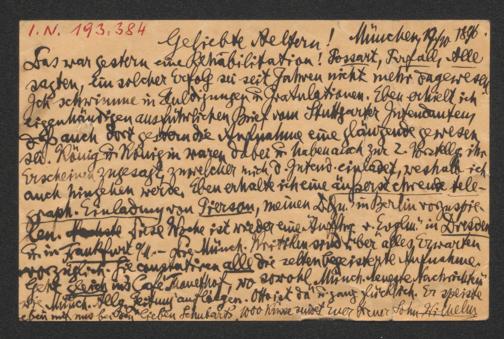 I.N. 193.384
Geliebte Aeltern! München, 12/10. 1896.
Das war gestern eine Rehabilitation! Possart, Alle
sagten, ein solcher Erfolg sei seit Jahren nicht mehr dagewesen.
Ich schwimme in Huldigungen u. Gratulationen. Eben erhielt ich
eigenhändigen ausführlichen Brief vom Stuttgarter Intendanten
daß auch dort gestern die Aufnahme eine glänzende gewesen
sei. König u. Königin waren dabei u. haben auch zur 2. Vorstellg ihr
Erscheinen zugesagt, zu welcher mich d. Intend. einladet, weshalb ich
auch hingehen werde. Eben erhalte ich eine tele-
graph. Einladung von Pierson, meinen in Berlin vorzuspie-
len. Diese Woche ist wieder eine v. Evglm. in Dresden
u. in Frankfurt a/M. – Die Münch. Kritiken sind über alles Erwarten
vorzüglich. Sie constatiren alle die selten begeisterte Aufnahme.
Geht gleich ins Café, wo sowohl Münch. Neueste Nachrichten
wie Münch. Allg. Zeitung aufliegen. Otto ist da u. ganz glücklich. Er speiste
eben mit uns bei den lieben Euer treuer Sohn Wilhelm